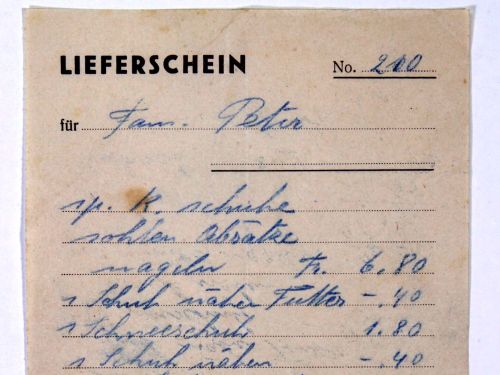 LIEFERSCHEIN No. 210
für Fam. Peter
1 p. K. schuhe
sohlen Absätze
nageln Fr. 6.80
1 Schuh nähen Futter -.40
1 Schneeschuh 1.80
1 Schuh nähen -.40